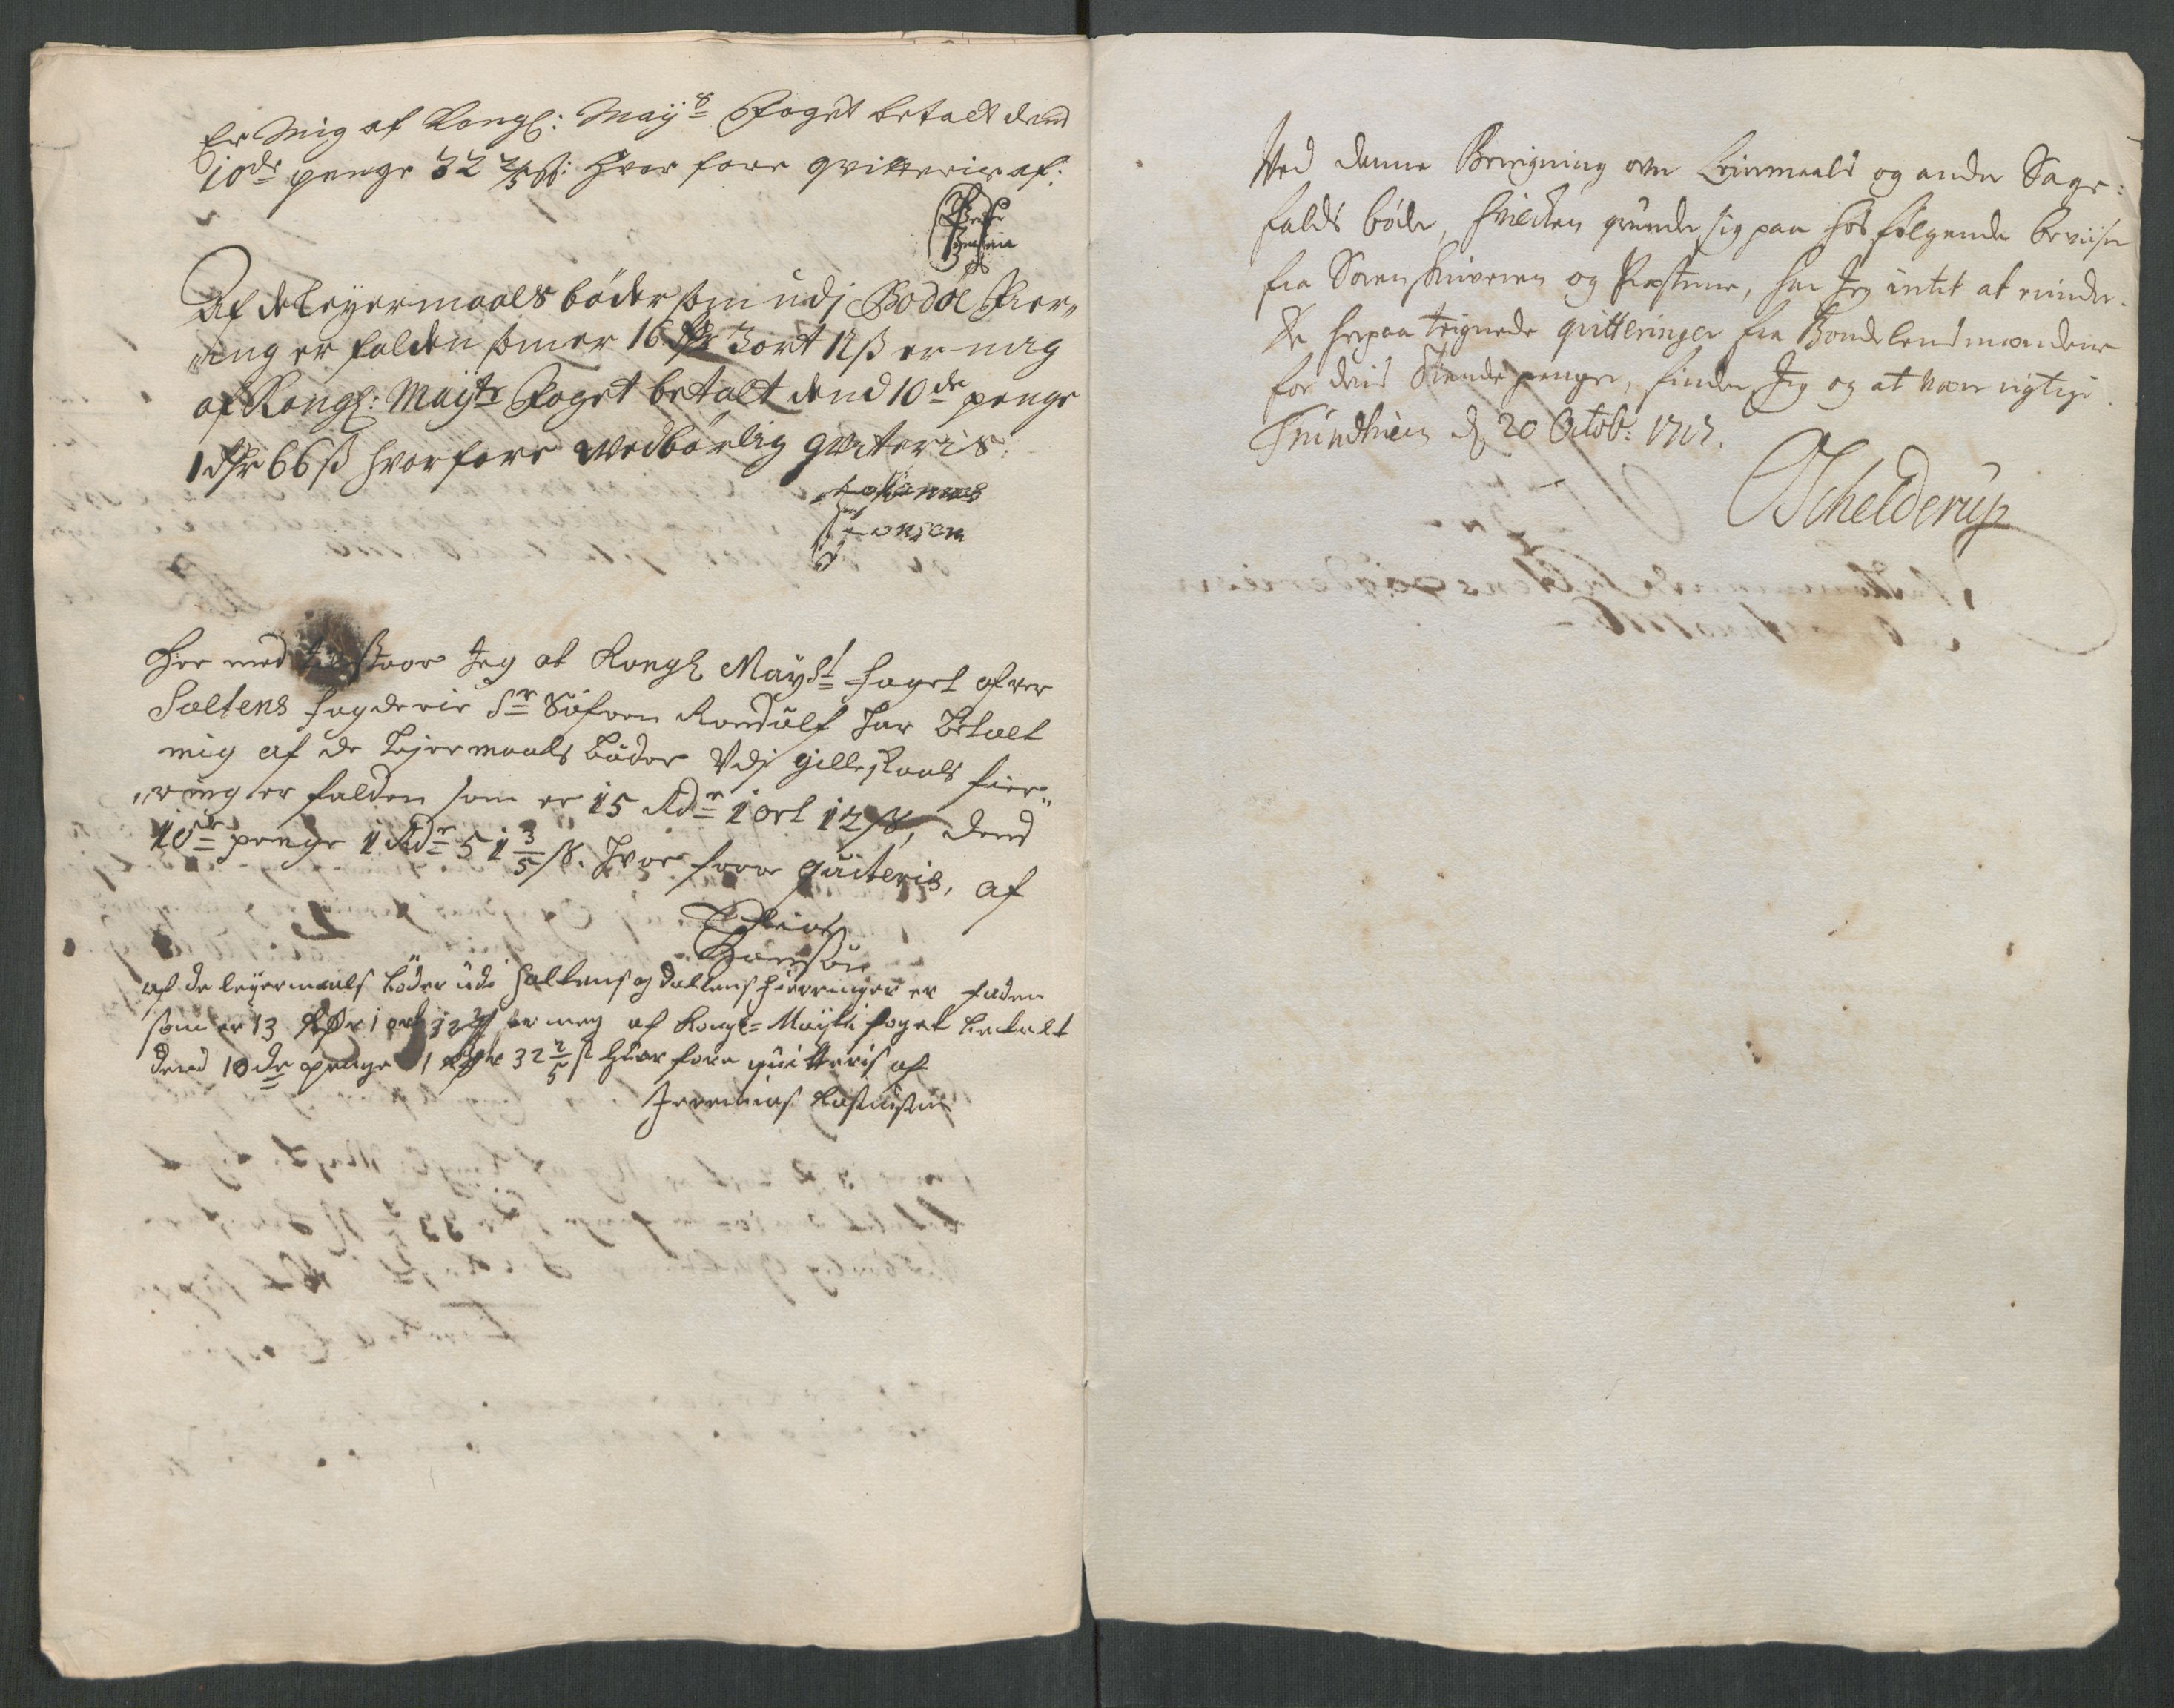 Er Mig af Kongl: Mayts Foget betalt dend
10de penge 32 2/5 ß: hvor fore qvitteris af:
Af de Leyermaals böder som udj Bodöe Fier„
„ing er falden som er 16 Rdr 3 ort 12 ß er mig
af Kongl: Mayts Foget betalt dend 10de penge
1 Rdr 66 ß hvorfore wedbörlig qviteris:
Johannes
Jonsøn
Her med tilstaar Jeg at Kongl Mayst foget ofver
Saltens fogderie Sr Söfren Rosdulf har betalt
mig af de Lejermaals Böder Vdj Gilleskaals fier„
„ring er falden som er 15 Rdr 1 ort 12 ß, dend
10de penge 1 Rdr 51 3/5 ß. hvor fore quiteris, af
Hansön
af de leyermaals böder udi Foldens og fierringer er faden
som er 13 Rdr 1 ort 12 ß er meg af Kongl= Maÿts foget betalt
dend 10de penge 1 Rdr 32 2/5 ß hvor fore quitteris af
Jeremias Rasmusen
Ved denne Beregning over Leiermaals og andre Sage:
falds böder, hvilcken grunder sig paa hos fölgende beviiser
fra Sorenskriveren og Præsterne, har Jeg intet at erindre.
De herpaa teignede qvitteringer fra Bondelensmændene
for deris Tiende penger, finder Jeg og at være rigtige.
Trundhiem d 20 Octob: 1717.
Schelderup